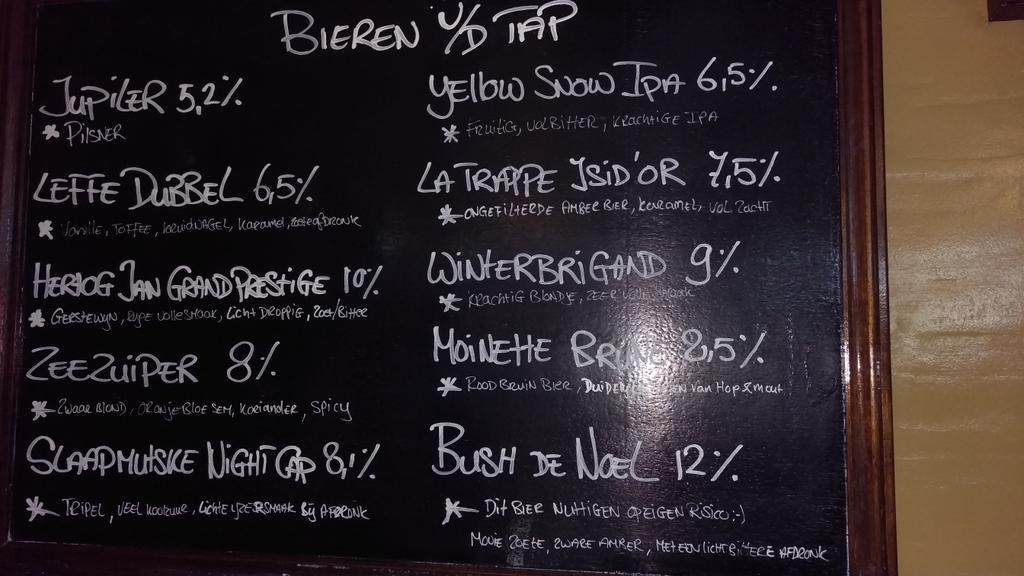 BIEREN V/D TAP
JUPILER 5,2%
* PILSNER
LEFFE DUBBEL 6,5%
* Vanille, TOFFEE, KRUIDNAGEL, Karamel, zoete afdronk
HERTOG JAN GRAND PRESTIGE 10%
* GERSTEWIJN, RIJPE VOLLE SMAAK, LICHT DROPPIG, Zoet/BITTER
ZEEZUIPER 8%
* ZWAAR BLOND, ORANJEBLOESEM, KORIANDER, SPICY
SLAAPMUTSKE NIGHT CAP 8,1%
* TRIPEL, VEEL KOOLZUUR, LICHTE IJZERSMAAK BIJ AFDRONK
YELLOW SNOW IPA 6,5%
* FRUITIG, VOLBITTER, KRACHTIGE IPA
LA TRAPPE ISID'OR 7,5%
* ONGEFILTERDE AMBER BIER, KARAMEL, VOL ZACHT
WINTERBRIGAND 9%
* KRACHTIG BLONDJE, ZEER
MOINETTE 8,5%
* ROODBRUIN BIER, van Hop & mout
BUSH DE NOEL 12%
* DIT BIER NUTTIGEN OP EIGEN RISICO :-)
MOOIE ZOETE, ZWARE AMBER, MET EEN LICHT BITTERE AFDRONK